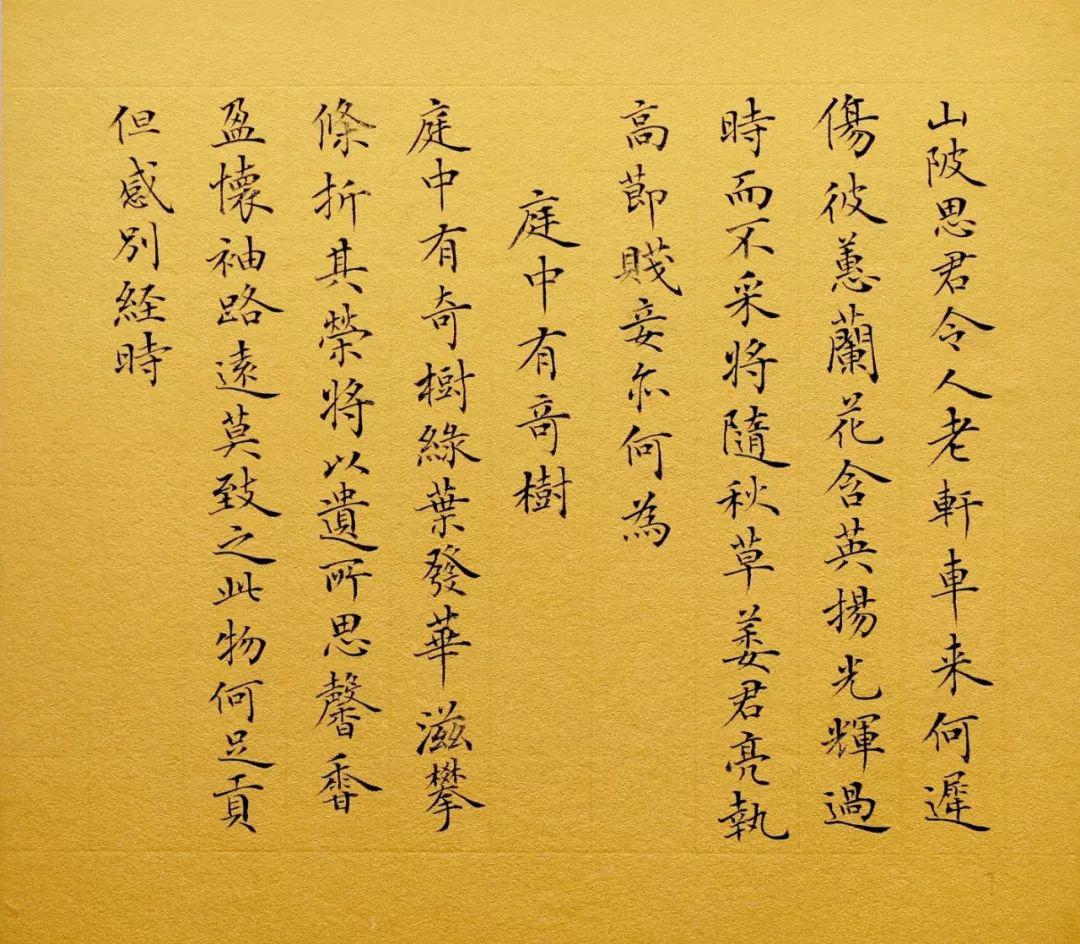 山陂思君令人老軒車来何遲
傷彼蕙蘭花含英揚光輝過
時而不采將隨秋草萎君亮執
高節賤妾亦何為
庭中有奇樹
庭中有奇樹綠葉發華滋攀
條折其榮將以遺所思馨香
盈懷袖路遠莫致之此物何足貢
但感別経時